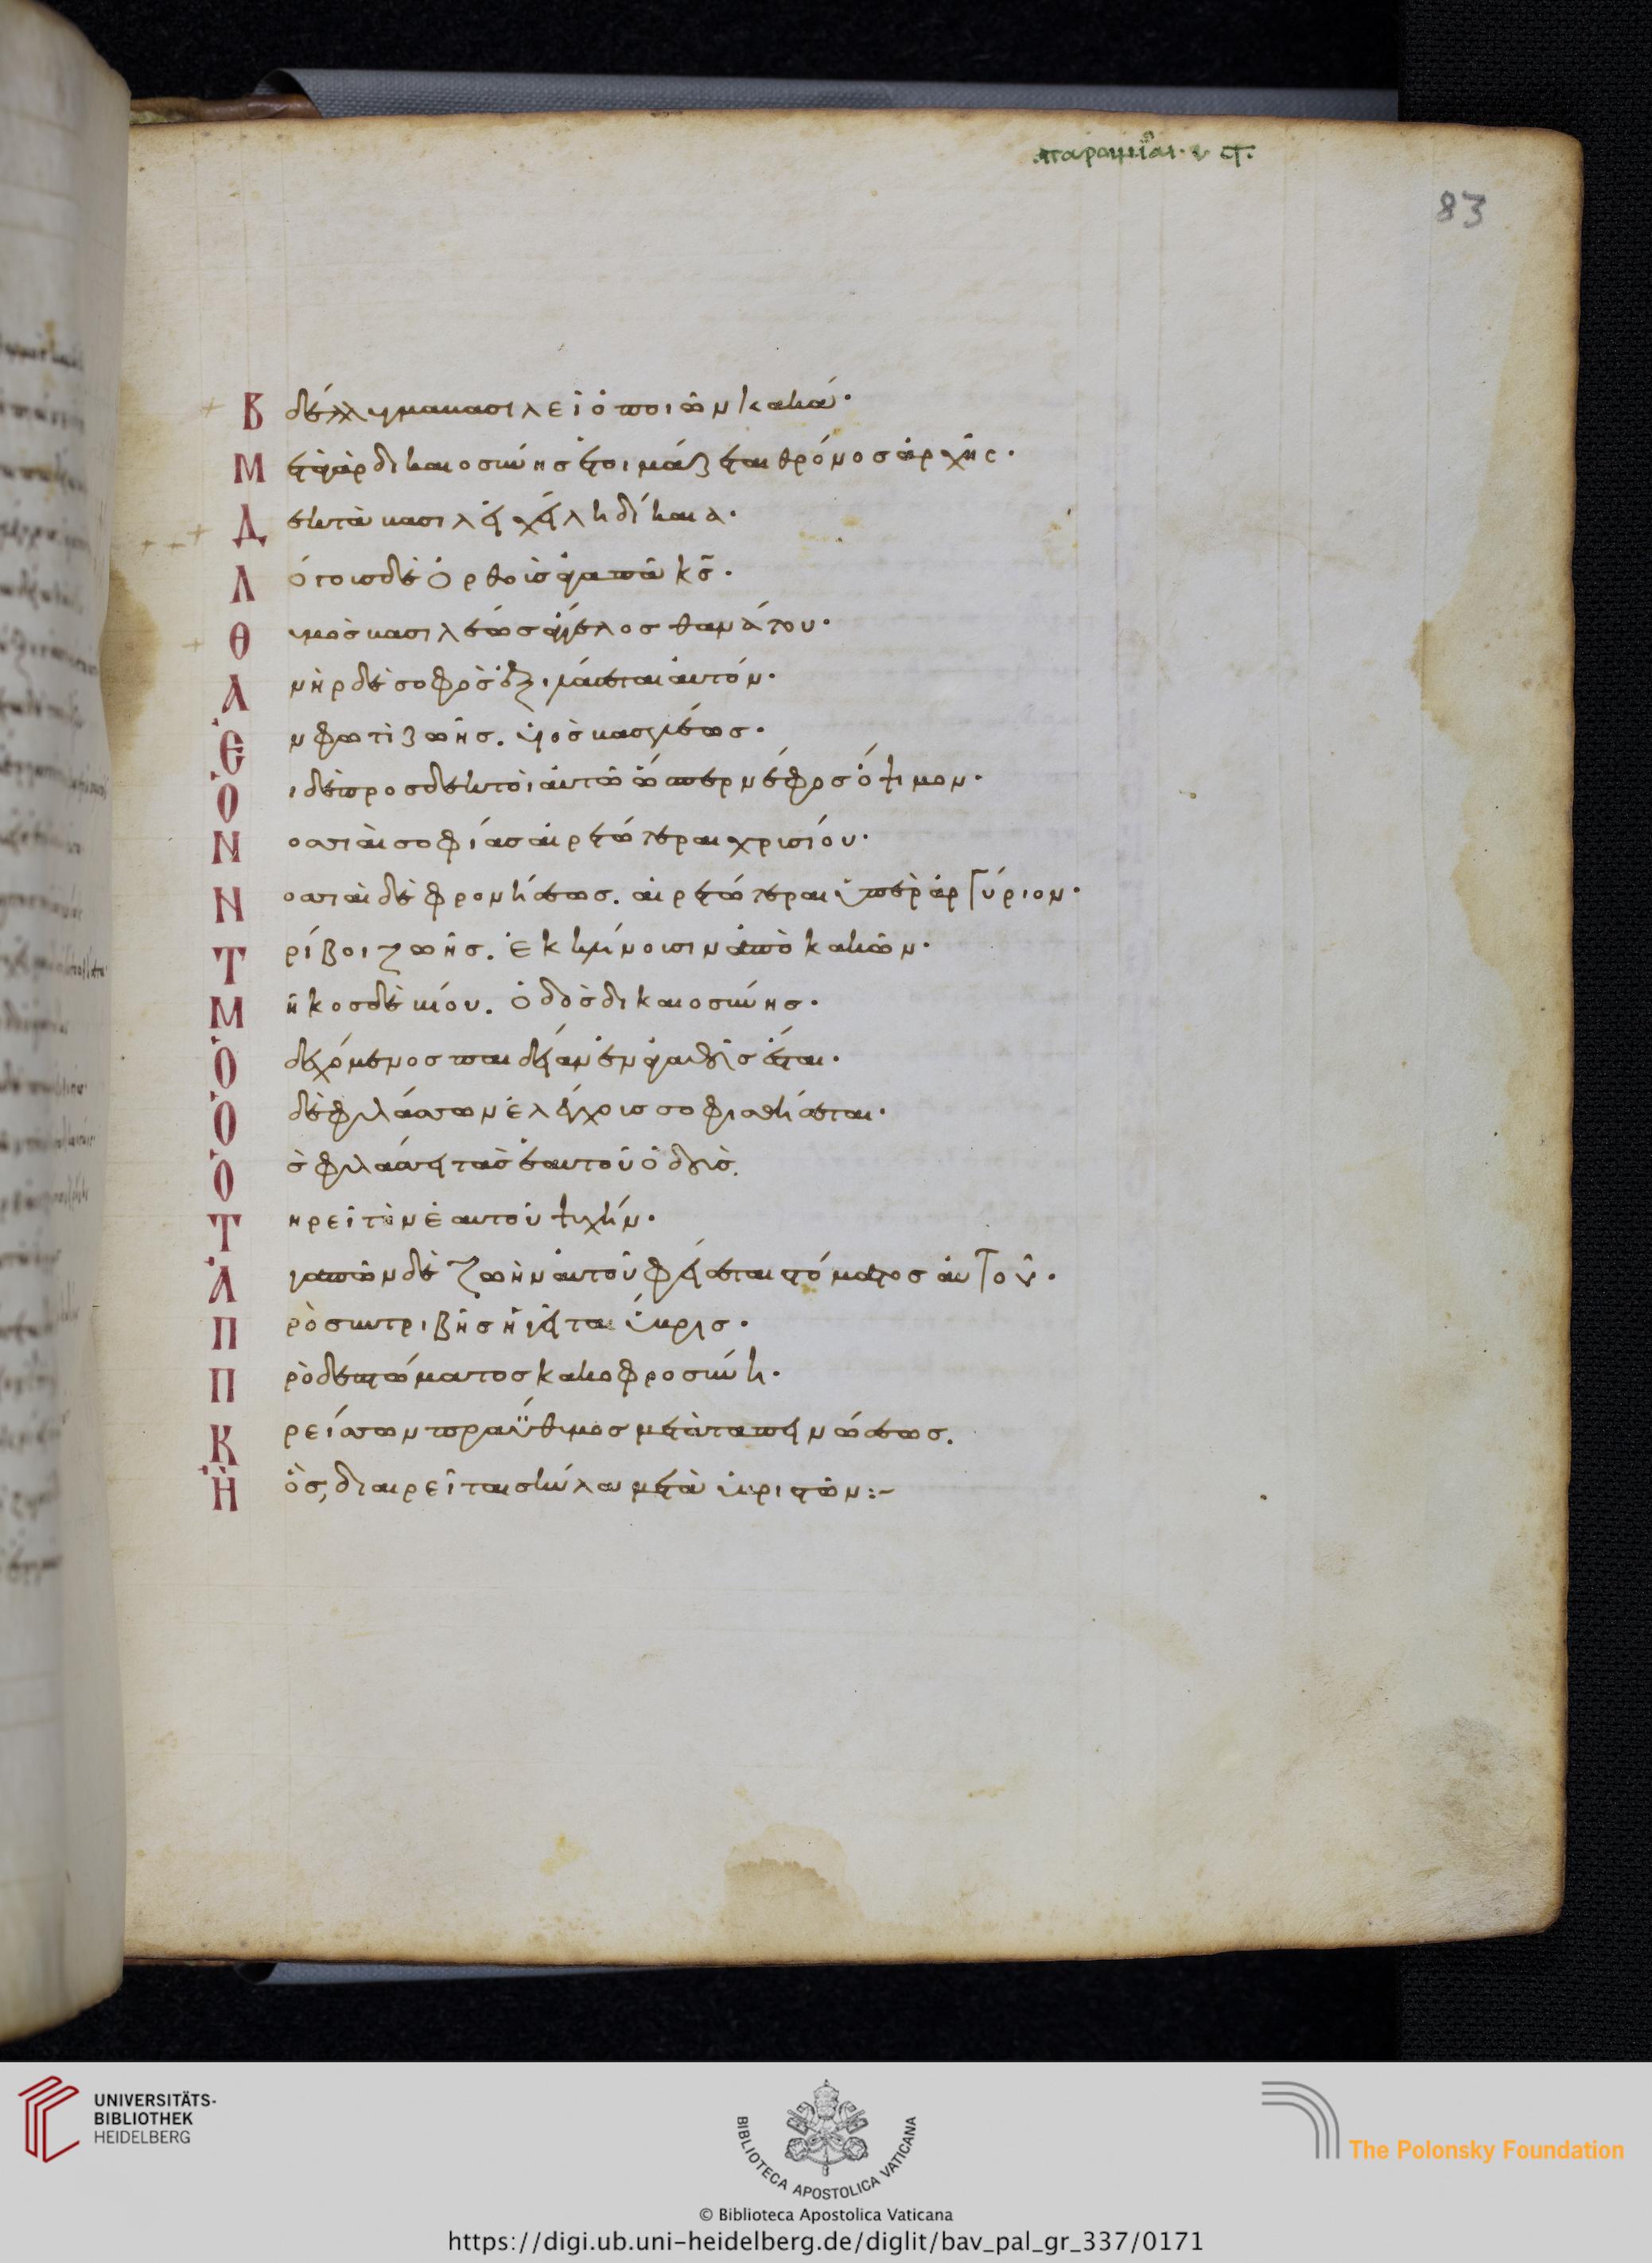 παροιμίαι· ις ϛ.
83
Βδέλυγμα βασιλεῖ ὁ ποιῶν κακά·
Μετὰ γὰρ δικαιοσύνης ἑτοιμάζεται θρόνος ἀρχῆς·
Δεκτὰ βασιλεῖ χείλη δίκαια·
Λόγους δὲ ὀρθοὺς ἀγαπᾷ κς·
Θυμὸς βασιλέως ἄγγελος θανάτου·
Ἀνὴρ δὲ σοφὸς ἐξιλάσεται αὐτόν·
Ἐν φωτὶ ζωῆς. υἱὸς βασιλέως·
Οἱ δὲ προσδεκτοὶ αὐτῷ ὥσπερ νέφος ὄψιμον·
Νοσσιαὶ σοφίας αἱρετώτεραι χρυσίου·
Νοσσιαὶ δὲ φρονήσεως. αἱρετώτεραι ὑπὲρ ἀργύριον·
Τρίβοι ζωῆς. ἐκκλίνουσιν ἀπὸ κακῶν·
Μῆκος δὲ βίου. ὁδοὶ δικαιοσύνης·
Ὁ δεχόμενος παιδείαν ἐν ἀγαθοῖς ἔσται·
Ὁ δὲ φυλάσσων ἐλέγχους σοφισθήσεται·
Ὃς φυλάσσει τὰς ἑαυτοῦ ὁδούς.
Τηρεῖ τὴν ἑαυτοῦ ψυχήν·
Ἀγαπῶν δὲ ζωὴν αὐτοῦ φείσεται στόματος αὐτοῦ·
Πρὸ συντριβῆς ἡγεῖται ὕβρις·
Πρὸ δὲ πτώματος κακοφροσύνη·
Κρείσσων πραΰθυμος μετὰ ταπεινώσεως.
Ἢ ὃς, διαιρεῖται σκῦλα μετὰ ὑβριστῶν:~
UNIVERSITÄTS-
BIBLIOTHEK
HEIDELBERG
BIBLIOTECA APOSTOLICA VATICANA
The Polonsky Foundation
© Biblioteca Apostolica Vaticana
https://digi.ub.uni-heidelberg.de/diglit/bav_pal_gr_337/0171